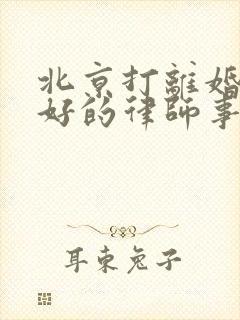 北京打離婚
好的律師事
耳東兔子